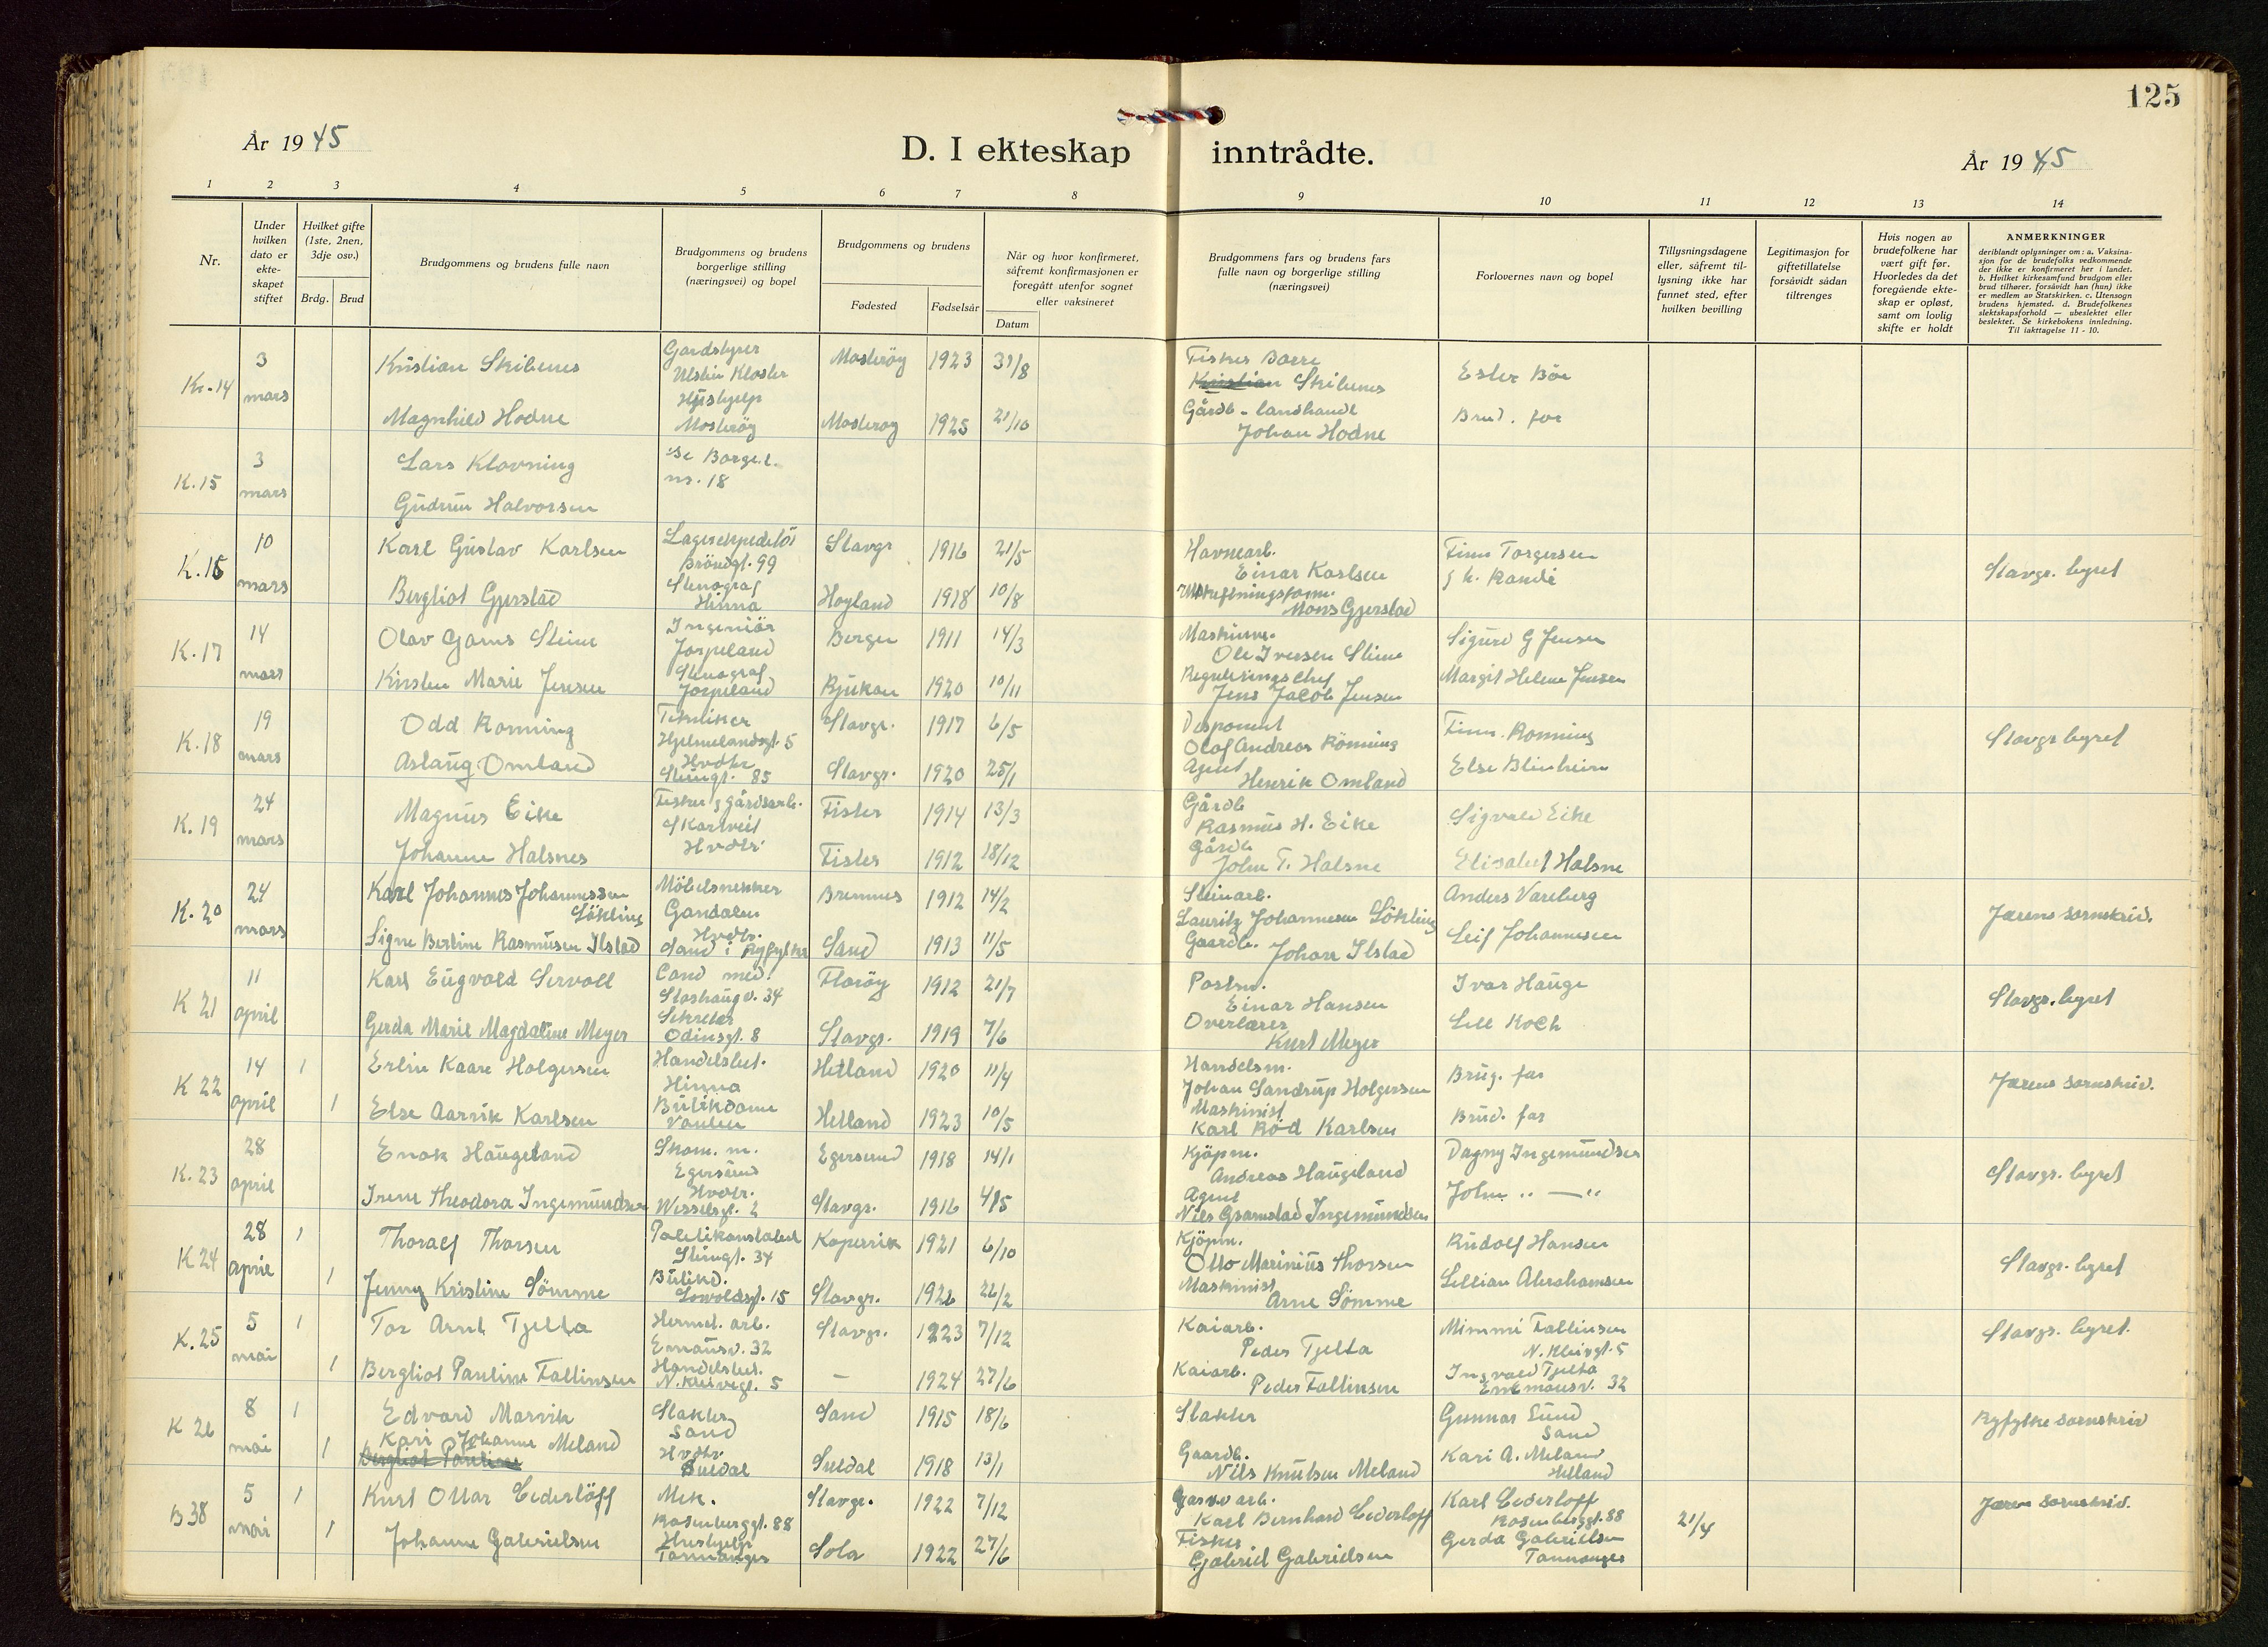 125
År 1945
D. I ekteskap inntrådte.
År 1945
1 2 3 4 5 6 7 8 9 10 11 12 13 14
Nr.
Under hvilken dato er ekte-skapet stiftet
Hvilket gifte (1ste, 2nen, 3dje osv.)
Brdg. Brud
Brudgommens og brudens fulle navn
Brudgommens og brudens borgerlige stilling (næringsvei) og bopel
Brudgommens og brudens
Fødested
Fødselsår
Når og hvor konfirmeret, såfremt konfirmasjonen er foregått utenfor sognet eller vaksineret
Datum
Brudgommens fars og brudens fars fulle navn og borgerlige stilling (næringsvei)
Forlovernes navn og bopel
Tillysningsdagene eller, såfremt til-lysning ikke har funnet sted, efter hvilken bevilling
Legitimasjon for giftetillatelse forsåvidt sådan tiltrenges
Hvis nogen av brudefolkene har vært gift før. Hvorledes da det foregående ekte-skap er opløst, samt om lovlig skifte er holdt
ANMERKNINGER
deriblandt oplysninger om: a. Vaksina-sjon for de brudefolks vedkommende der ikke er konfirmeret her i landet. b. Hvilket kirkesamfund brudgom eller brud tilhører, forsåvidt han (hun) ikke er medlem av Statskirken. c. Utensogn brudens hjemsted. d. Brudefolkenes slektskapsforhold — ubeslektet eller beslektet. Se kirkebokens innledning. Til iakttagelse 11 - 10.
Kr-14 3 mars Kristian Skibenes Gardstyrer Utstein Kloster Mosterøy 1923 31/8 Fisker Kristian Skibenes Ester Böe
Magnhild Hodne Hushjelp Mosterøy Mosterøy 1925 21/10 Gårdb - landhandl Johan Hodne Brud. far
K. 15 3 mars Lars Klovning Se Borge.l. nr. 18
Gudrun Halvorsen
K. 16 10 mars Karl Gustav Karlsen Lagerekspeditör Bröndgt. 99 Stavgr 1916 21/5 Havnearb. Einar Karlsen Finn Torgersen Stavgr. byret
Bergliot Gjerstad Stenograf Hinna Høyland 1918 10/8 Utskiftningsform. Mons Gjerstad g h. Randi
K. 17 14 mars Olav Garns Steine Ingeniör Jorpeland Bergen 1911 14/3 Ole Iversen Steine Sigurd G Jensen
Kirsten Marie Jensen Stenograf Jorpeland Rjukan 1920 10/11 Reguleringschef Jens Jacob Jensen Margit Helene Jensen
K. 18 19 mars Odd Ronning Tekniker Hjelmelandsgt. 5 Stavgr. 1917 6/5 Disponent Olaf Andreas Rönning Finn Ronning Stavgr byret
Aslaug Omland Hvdtr Steingt. 85 Stavgr. 1920 25/1 Agent Henrik Omland Else Blinheim
K. 19 24 mars Magnus Eike Fisker g gårdsarb. Skartveit Fister 1914 13/3 Gårdb Rasmus H. Eike Sigvald Eike
Johanne Halsnes Hvdtr. Fister 1912 18/12 Gårdb John T. Halsne Elisabet Halsne
K. 20 24 mars Karl Johannes Johannessen Lökling Möbelsnekker Gandalen Bremnes 1912 14/2 Steinarb. Lauritz Johannesen Lökling Anders Vareberg Jærens sornskriv.
Signe Bertine Rasmusen Ilstad Hvdtr. Sand i Ryfylke Sand 1913 11/5 Gaardb. Johan Ilstad Leif Johannesen
K 21 11 april Karl Eugvald Servoll Cand med. Storhaugv. 34 Florøy 1912 21/7 Postm. Einar Hansen Ivar Hauge Stavgr. byret
Gerda Marie Magdalene Meyer Sekretær Odinsgt. 8 Stavgr. 1919 7/6 Overlærer Kurt Meyer Lell Koch
K 22 14 april 1 Erlin Kaare Holgersen Handelsbet. Hinna Hetland 1920 11/4 Handelsm. Johan Sandrup Holgersen Brug. far Jærens sornskriv.
1 Else Aarvik Karlsen Butikdame Vaulen Hetland 1923 10/5 Maskinist Karl Röd Karlsen Brud. far
K. 23 28 april Enok Haugeland Skom. m. Egersund Egersund 1918 14/1 Kjöpm. Andreas Haugeland Dagny Ingemundsen Stavgr. byret
Irene Theodora Ingemundsen Hvdtr. Wesselsgt. 2 Stavgr. 1916 4/5 Agent Nils Gramstad Ingemundsen John ,, — ,,
K 24 28 april 1 Thoralf Thorsen Politikonstabel Steingt. 34 Kopervik 1921 6/10 Kjöpm. Otto Marinius Thorsen Rudolf Hansen Stavgr. byret
1 Jenny Kristine Sömme Butikd. Sowoldsgt. 15 Stavgr. 1926 26/2 Maskinist Arne Sömme Lillian Abrahamsen
K. 25 5 mai 1 Tor Arnt Tjelta Hermet. arb. Emausv. 32 Stavgr. 1923 7/12 Kaiarb. Peder Tjelta Mimmi Fallinsen N. Kleivgt. 5 Stavgr. byret.
1 Bergliot Pauline Fallinsen Handelsbet. N. Kleivegt. 5 — 1924 27/6 Kaiarb. Peder Fallinsen Ingvald Tjelta Emmausv. 32
K 26 8 mai 1 Edvard Marvik Slakter Sand Sand 1915 18/6 Slakter Gunnar Lund Sand Ryfylke sornskriv
1 Kari Johanne Meland Bergliot Pauline Hvdtr. Suldal Suldal 1918 13/1 Gaardb. Nils Knutsen Meland Kari A. Meland Hetland
B 38 5 mai 1 Kurt Ottar Cederlöff Mek. Rosenberggt. 88 Stavgr. 1922 7/12 Gasvv arb. Karl Bernhard Cederloff Karl Cederloff Rosenberggt. 88 21/4 Jæren sornskriv.
1 Johanne Gabrielsen Hushjelp Tannanger Sola 1922 27/6 Fisker Gabriel Gabrielsen Gerda Gabrielsen Tannanger